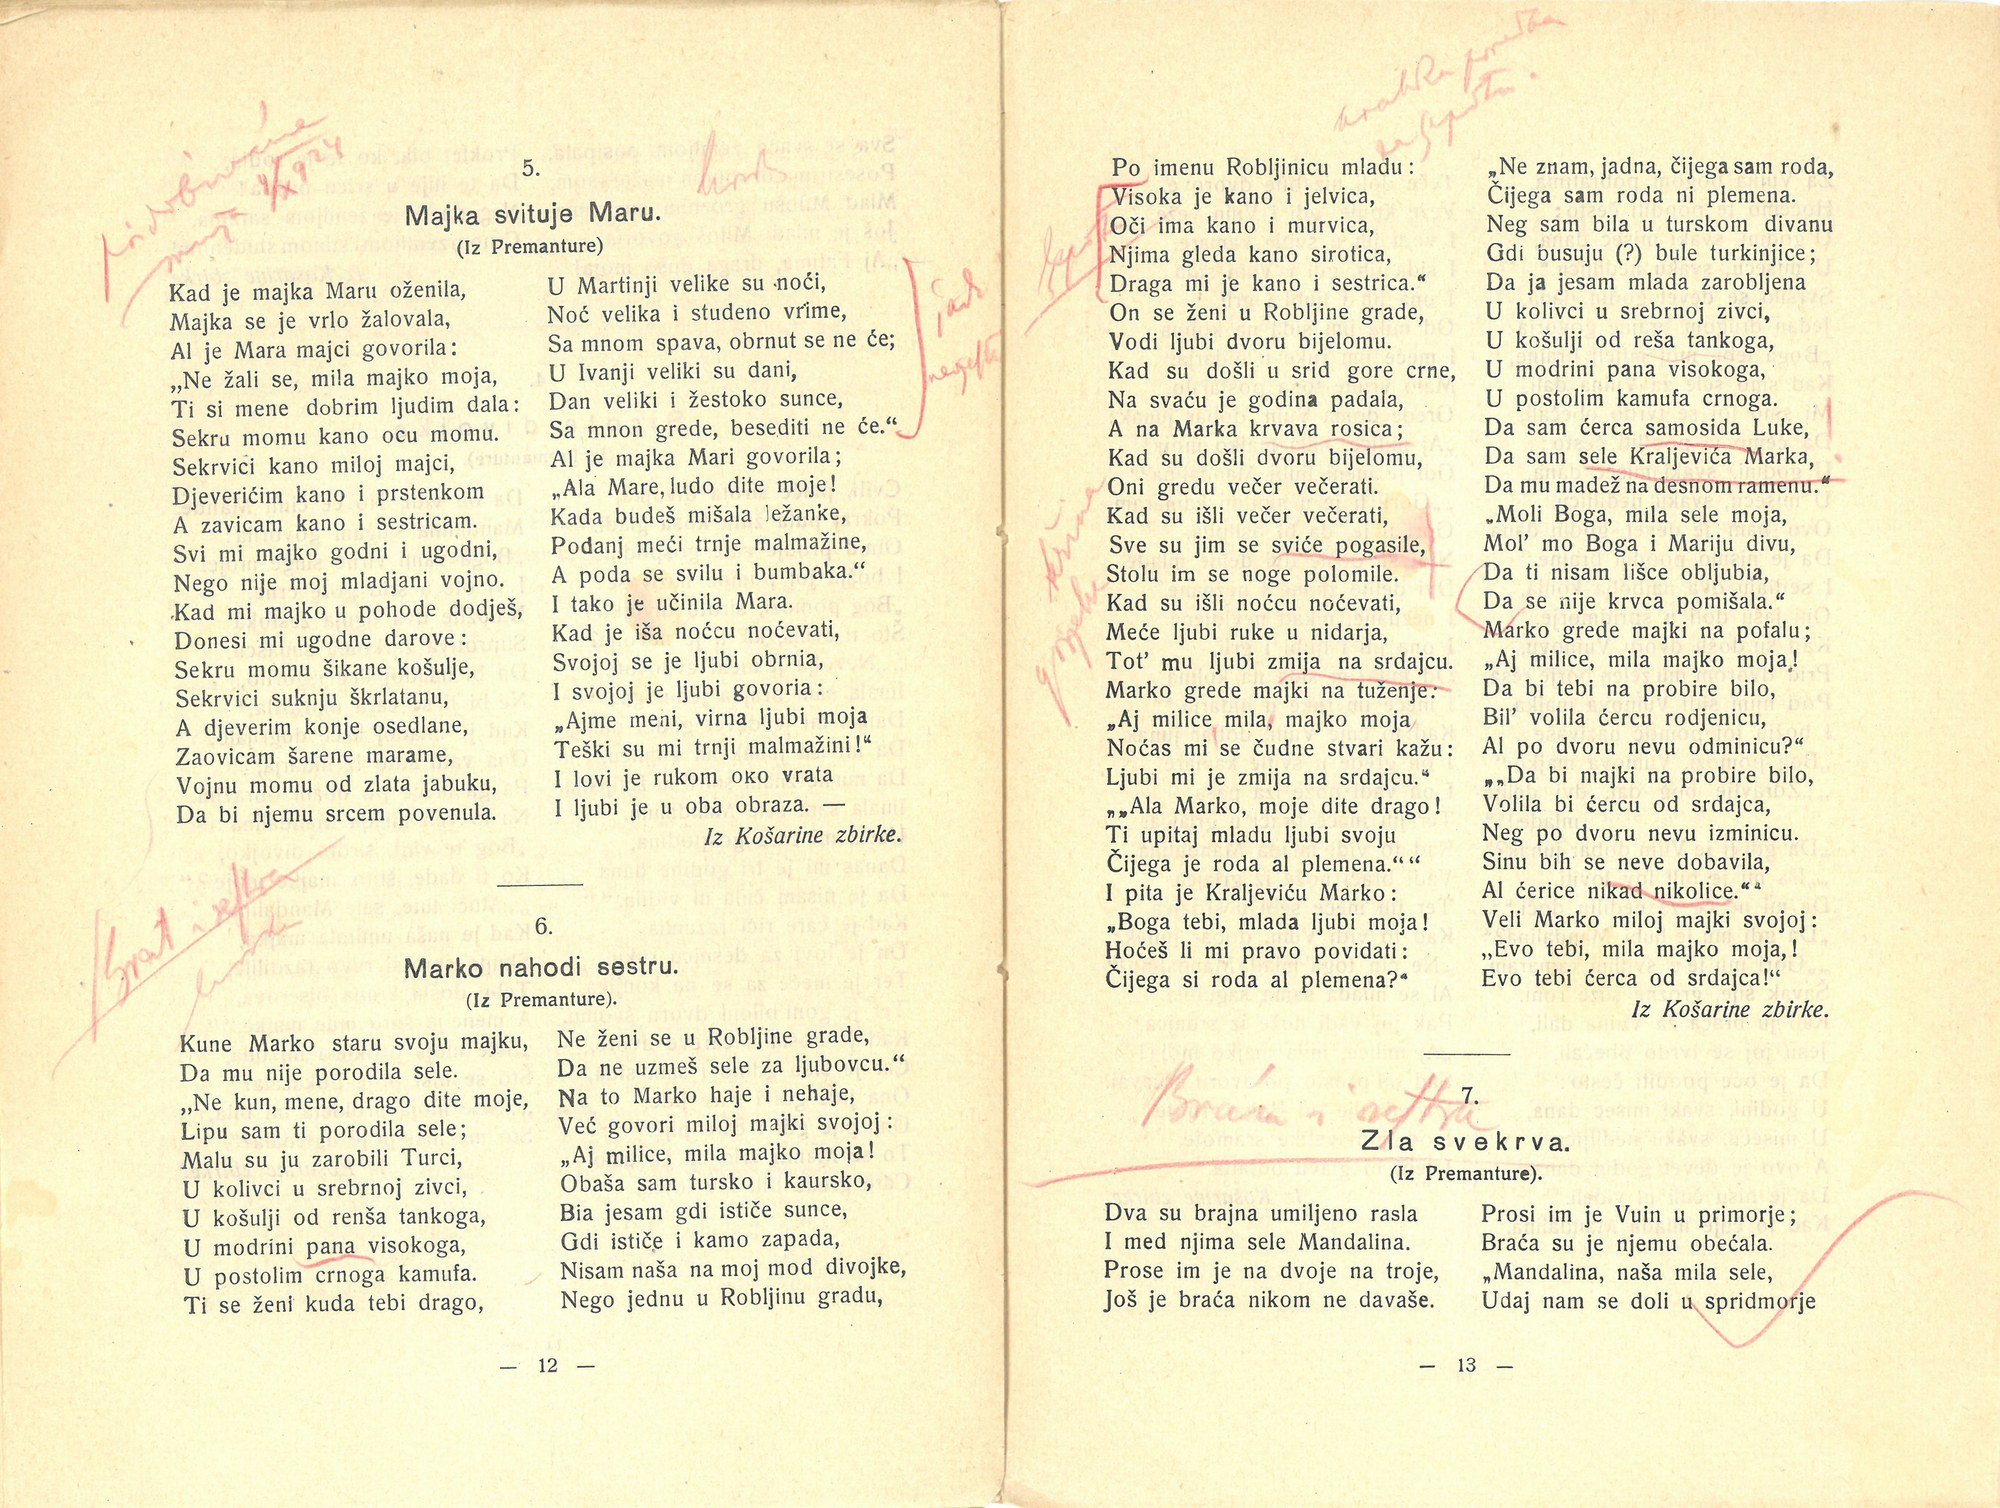 5.
Majka svituje Maru.
(Iz Premanture)
Kad je majka Maru oženila,
Majka se je vrlo žalovala,
Al je Mara majci govorila:
„Ne žali se, mila majko moja,
Ti si mene dobrim ljudim dala:
Sekru momu kano ocu momu.
Sekrvici kano miloj majci,
Djeverićim kano i prstenkom
A zavicam kano i sestricam.
Svi mi majko godni i ugodni,
Nego nije moj mladjani vojno.
Kad mi majko u pohode dodješ,
Donesi mi ugodne darove:
Sekru momu šikane košulje,
Sekrvici suknju škrlatanu,
A djeverim konje osedlane,
Zaovicam šarene marame,
Vojnu momu od zlata jabuku,
Da bi njemu srcem povenula.
U Martinji velike su noći,
Noć velika i studeno vrime,
Sa mnom spava, obrnut se ne će;
U Ivanji veliki su dani,
Dan veliki i žestoko sunce,
Sa mnon grede, besediti ne će.“
Al je majka Mari govorila;
„Ala Mare, ludo dite moje!
Kada budeš mišala ležanke,
Podanj meći trnje malmažine,
A poda se svilu i bumbaka.“
I tako je učinila Mara.
Kad je iša noćcu noćevati,
Svojoj se je ljubi obrnia,
I svojoj je ljubi govoria:
„Ajme meni, virna ljubi moja
Teški su mi trnji malmažini!“
I lovi je rukom oko vrata
I ljubi je u oba obraza. —
Iz Košarine zbirke.
Brat i sestra
6.
Marko nahodi sestru.
(Iz Premanture).
Kune Marko staru svoju majku,
Da mu nije porodila sele.
„Ne kun, mene, drago dite moje,
Lipu sam ti porodila sele;
Malu su ju zarobili Turci,
U kolivci u srebrnoj zivci,
U košulji od renša tankoga,
U modrini pana visokoga,
U postolim crnoga kamufa.
Ti se ženi kuda tebi drago,
Ne ženi se u Robljine grade,
Da ne uzmeš sele za ljubovcu.“
Na to Marko haje i nehaje,
Već govori miloj majki svojoj:
„Aj milice, mila majko moja!
Obaša sam tursko i kaursko,
Bia jesam gdi ističe sunce,
Gdi ističe i kamo zapada,
Nisam naša na moj mod divojke,
Nego jednu u Robljinu gradu,
— 12 —
Po imenu Robljinicu mladu:
Visoka je kano i jelvica,
Oči ima kano i murvica,
Njima gleda kano sirotica,
Draga mi je kano i sestrica.“
On se ženi u Robljine grade,
Vodi ljubi dvoru bijelomu.
Kad su došli u srid gore crne,
Na svaću je godina padala,
A na Marka krvava rosica;
Kad su došli dvoru bijelomu,
Oni gredu večer večerati.
Kad su išli večer večerati,
Sve su jim se sviće pogasile,
Stolu im se noge polomile.
Kad su išli noćcu noćevati,
Meće ljubi ruke u nidarja,
Tot’ mu ljubi zmija na srdajcu.
Marko grede majki na tuženje:
„Aj milice mila, majko moja
Noćas mi se čudne stvari kažu:
Ljubi mi je zmija na srdajcu.“
„„Ala Marko, moje dite drago!
Ti upitaj mladu ljubi svoju
Čijega je roda al plemena.““
I pita je Kraljeviću Marko:
„Boga tebi, mlada ljubi moja!
Hoćeš li mi pravo povidati:
Čijega si roda al plemena?“
„Ne znam, jadna, čijega sam roda,
Čijega sam roda ni plemena.
Neg sam bila u turskom divanu
Gdi busuju (?) bule turkinjice;
Da ja jesam mlada zarobljena
U kolivci u srebrnoj zivci,
U košulji od reša tankoga,
U modrini pana visokoga,
U postolim kamufa crnoga.
Da sam ćerca samosida Luke,
Da sam sele Kraljevića Marka,
Da mu madež na desnom ramenu.“
„Moli Boga, mila sele moja,
Mol’ mo Boga i Mariju divu,
Da ti nisam lišce obljubia,
Da se nije krvca pomišala.“
Marko grede majki na pofalu;
„Aj milice, mila majko moja!
Da bi tebi na probire bilo,
Bil’ volila ćercu rodjenicu,
Al po dvoru nevu odminicu?“
„„Da bi majki na probire bilo,
Volila bi ćercu od srdajca,
Neg po dvoru nevu izminicu.
Sinu bih se neve dobavila,
Al ćerice nikad nikolice.““
Veli Marko miloj majki svojoj:
„Evo tebi, mila majko moja,!
Evo tebi ćerca od srdajca!“
Iz Košarine zbirke.
Braća i sestra
7.
Zla svekrva.
(Iz Premanture).
Dva su brajna umiljeno rasla
I med njima sele Mandalina.
Prose im je na dvoje na troje,
Još je braća nikom ne davaše.
Prosi im je Vuin u primorje;
Braća su je njemu obećala.
„Mandalina, naša mila sele,
Udaj nam se doli u spridmorje
— 13 —